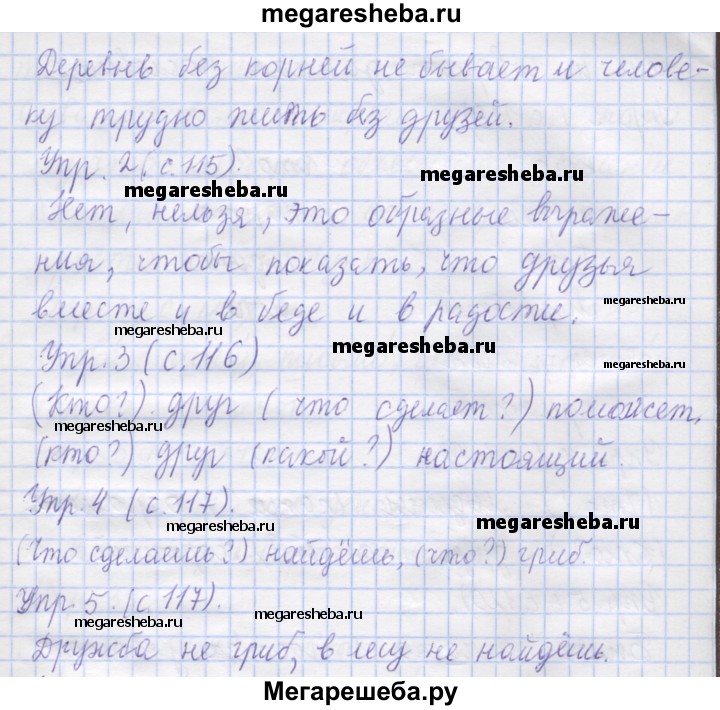 megaresheba.ru
Деревнь без корней не бывает и челове-
ку трудно жить без друзей.
Упр. 2 (с.115).
megaresheba.ru
megaresheba.ru
Нет, нельзя, это образные выраже-
ния, чтобы показать, что друзья
вместе и в беде и в радости.
megaresheba.ru
megaresheba.ru
megaresheba.ru
Упр. 3 (с.116)
megaresheba.ru
(Кто?) друг (что сделает?) поможет,
megaresheba.ru
(кто?) друг (какой?) настоящий.
Упр. 4 (с.117).
megaresheba.ru
megaresheba.ru
(Что сделаешь?) найдёшь, (что?) гриб.
Упр. 5. (с.117).
megaresheba.ru
megaresheba.ru
Дружба не гриб, в лесу не найдёшь.
Мегарешеба.ру